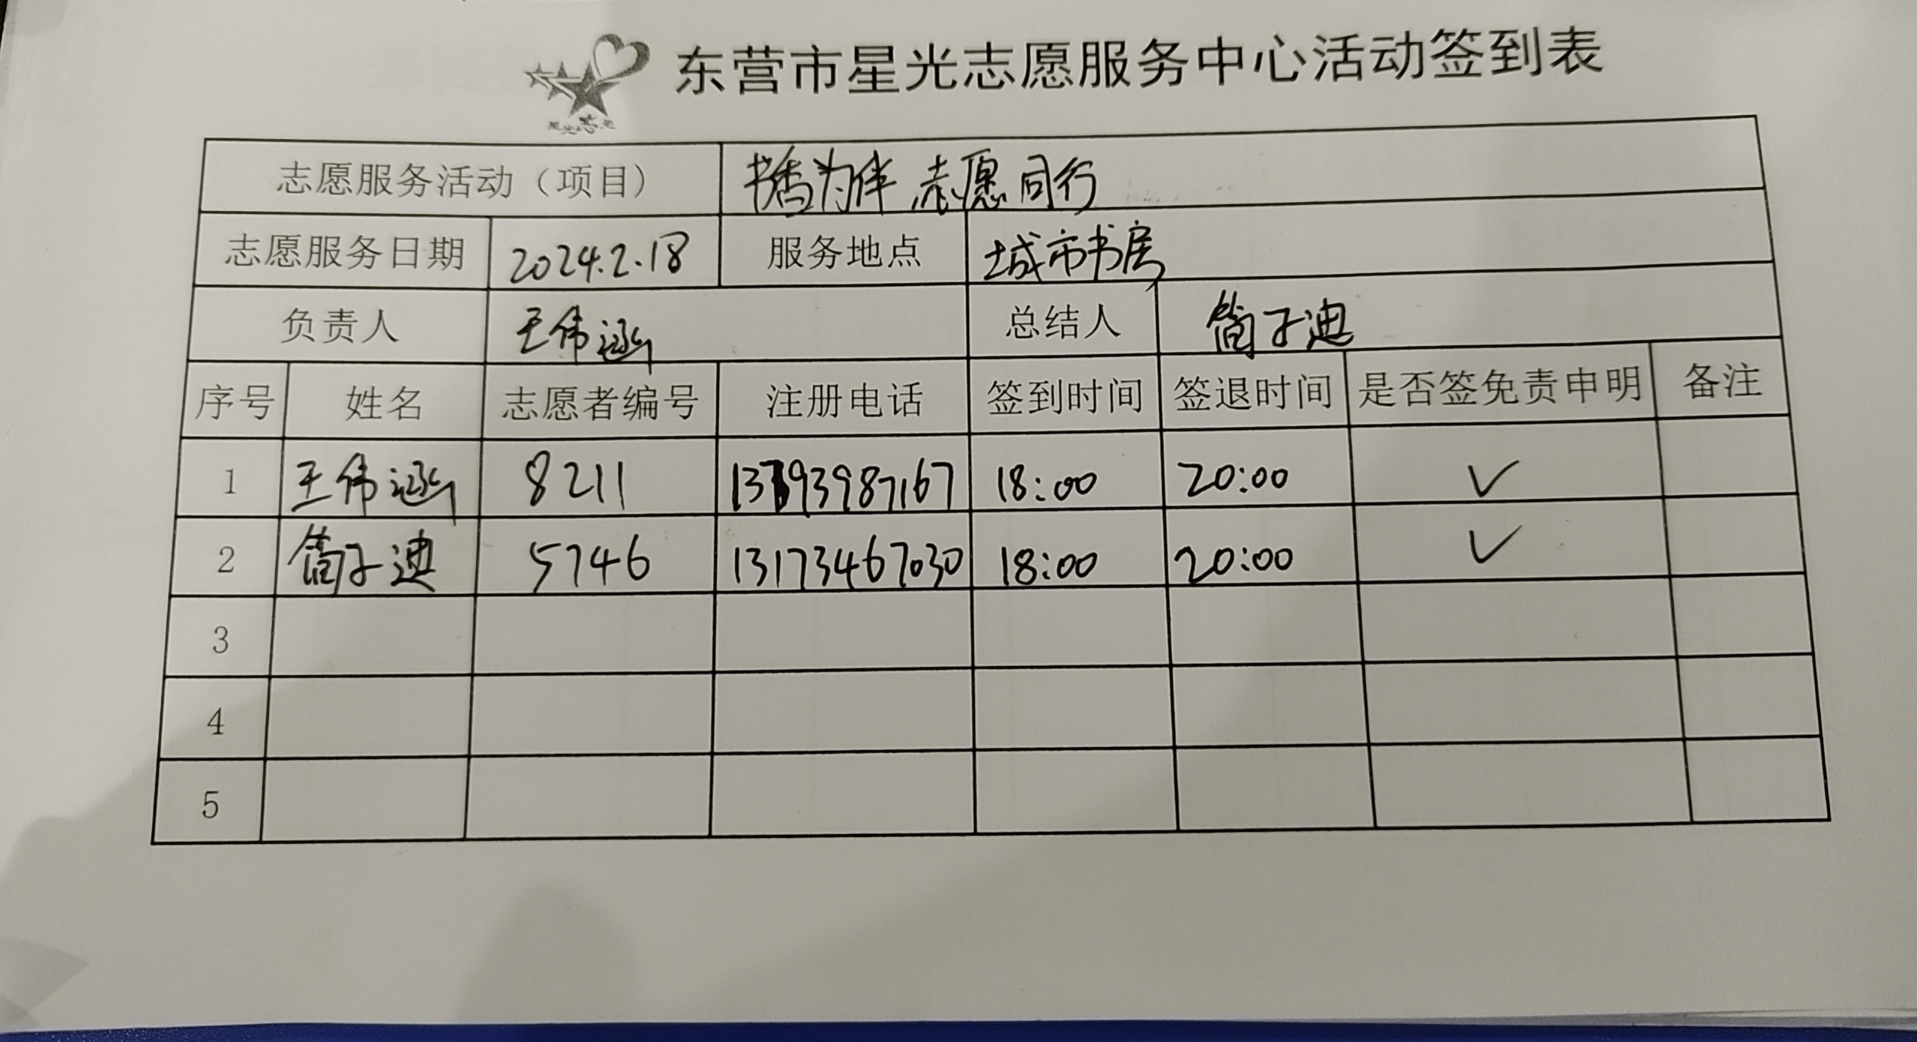 东营市星光志愿服务中心活动签到表
志愿服务活动（项目） 书香为伴 志愿同行
志愿服务日期 2024.2.18 服务地点 城市书房
负责人 王伟涵 总结人 简子迪
序号 姓名 志愿者编号 注册电话 签到时间 签退时间 是否签免责申明 备注
1 王伟涵 8211 13793987167 18:00 20:00 ✓
2 简子迪 5746 13173467030 18:00 20:00 ✓
3
4
5